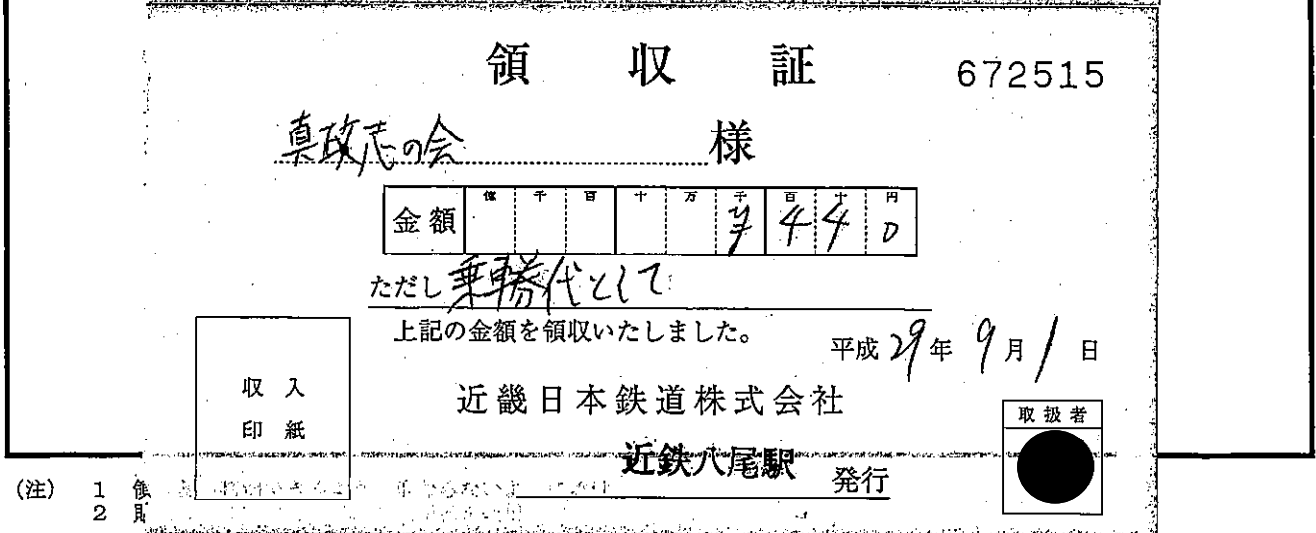 領 収 証 672515
真政志の会 様
億 千 百 十 万 千 百 十 円
金額 ¥440
ただし 乗車券代として
上記の金額を領収いたしました。
平成29年9月1日
収入
印紙
近畿日本鉄道株式会社
取扱者
近鉄八尾駅 発行
(注) 1
2